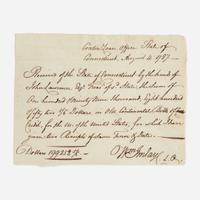 Contin. Loan Office State of
Connecticut, August 4. 1787.
Received of the State of Connecticut by the hands of
John Lawrence Esqr Treasr of sd State, the sum of
One hundred Ninety Nine thousand, Eight hundred
fifty two Dollars in Old Continental Bills of
Credit, for the use of the united States, for which I have
given two Receipts of same Tenor & date.
Dollars
Wm Imlay